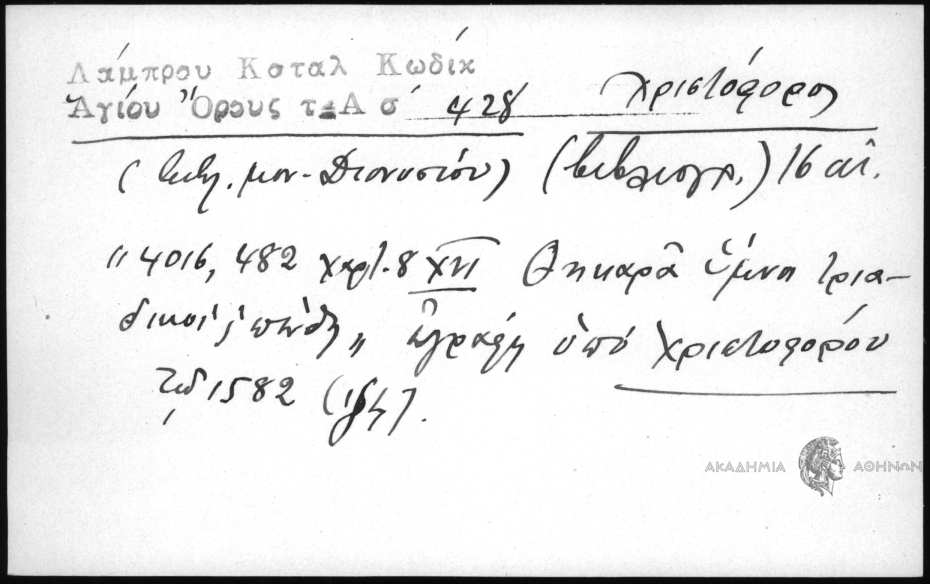 Λάμπρου Καταλ Κώδικ
Ἁγίου Ὄρους τ. Α σ 428 Χριστόφορος
(Βιβλ. μον. Διονυσίου) (βιβλιογρ.) 16 αἰ.
"4016, 482 χαρτ. 8 XVI Θηκαρᾶ ὕμνοι τρια-
δικοὶ " ἐγράφη ὑπὸ Χριστοφόρου
τῷ 1582
ΑΚΑΔΗΜΙΑ ΑΘΗΝΩΝ